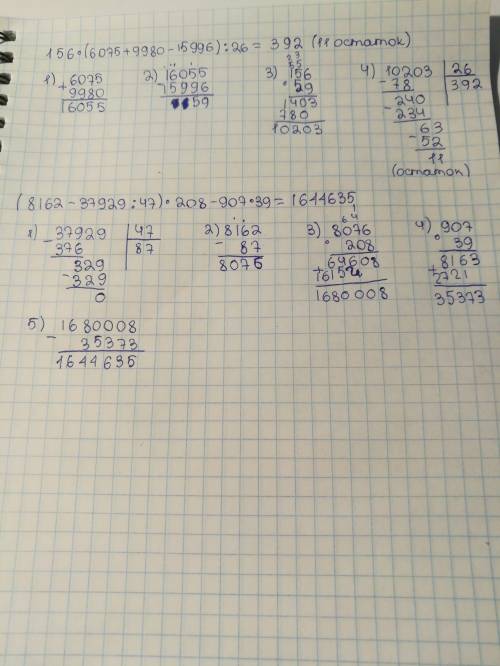 156·(6075+9980-15996):26=392 (11 остаток)
1) 6075
+ 9980
16055
2) 16055
- 15996
59
3) 156
· 59
1403
780
10203
4) 10203 26
- 78 392
240
- 234
63
- 52
11
(остаток)
(8162-37929:47)·208-907·39=1644635
1) 37929 47
- 376 87
329
- 329
0
2) 8162
- 87
8075
3) 8076
· 208
64608
+ 16152
1680008
4) 907
· 39
8163
+ 2721
35373
5) 1680008
- 35373
1644635